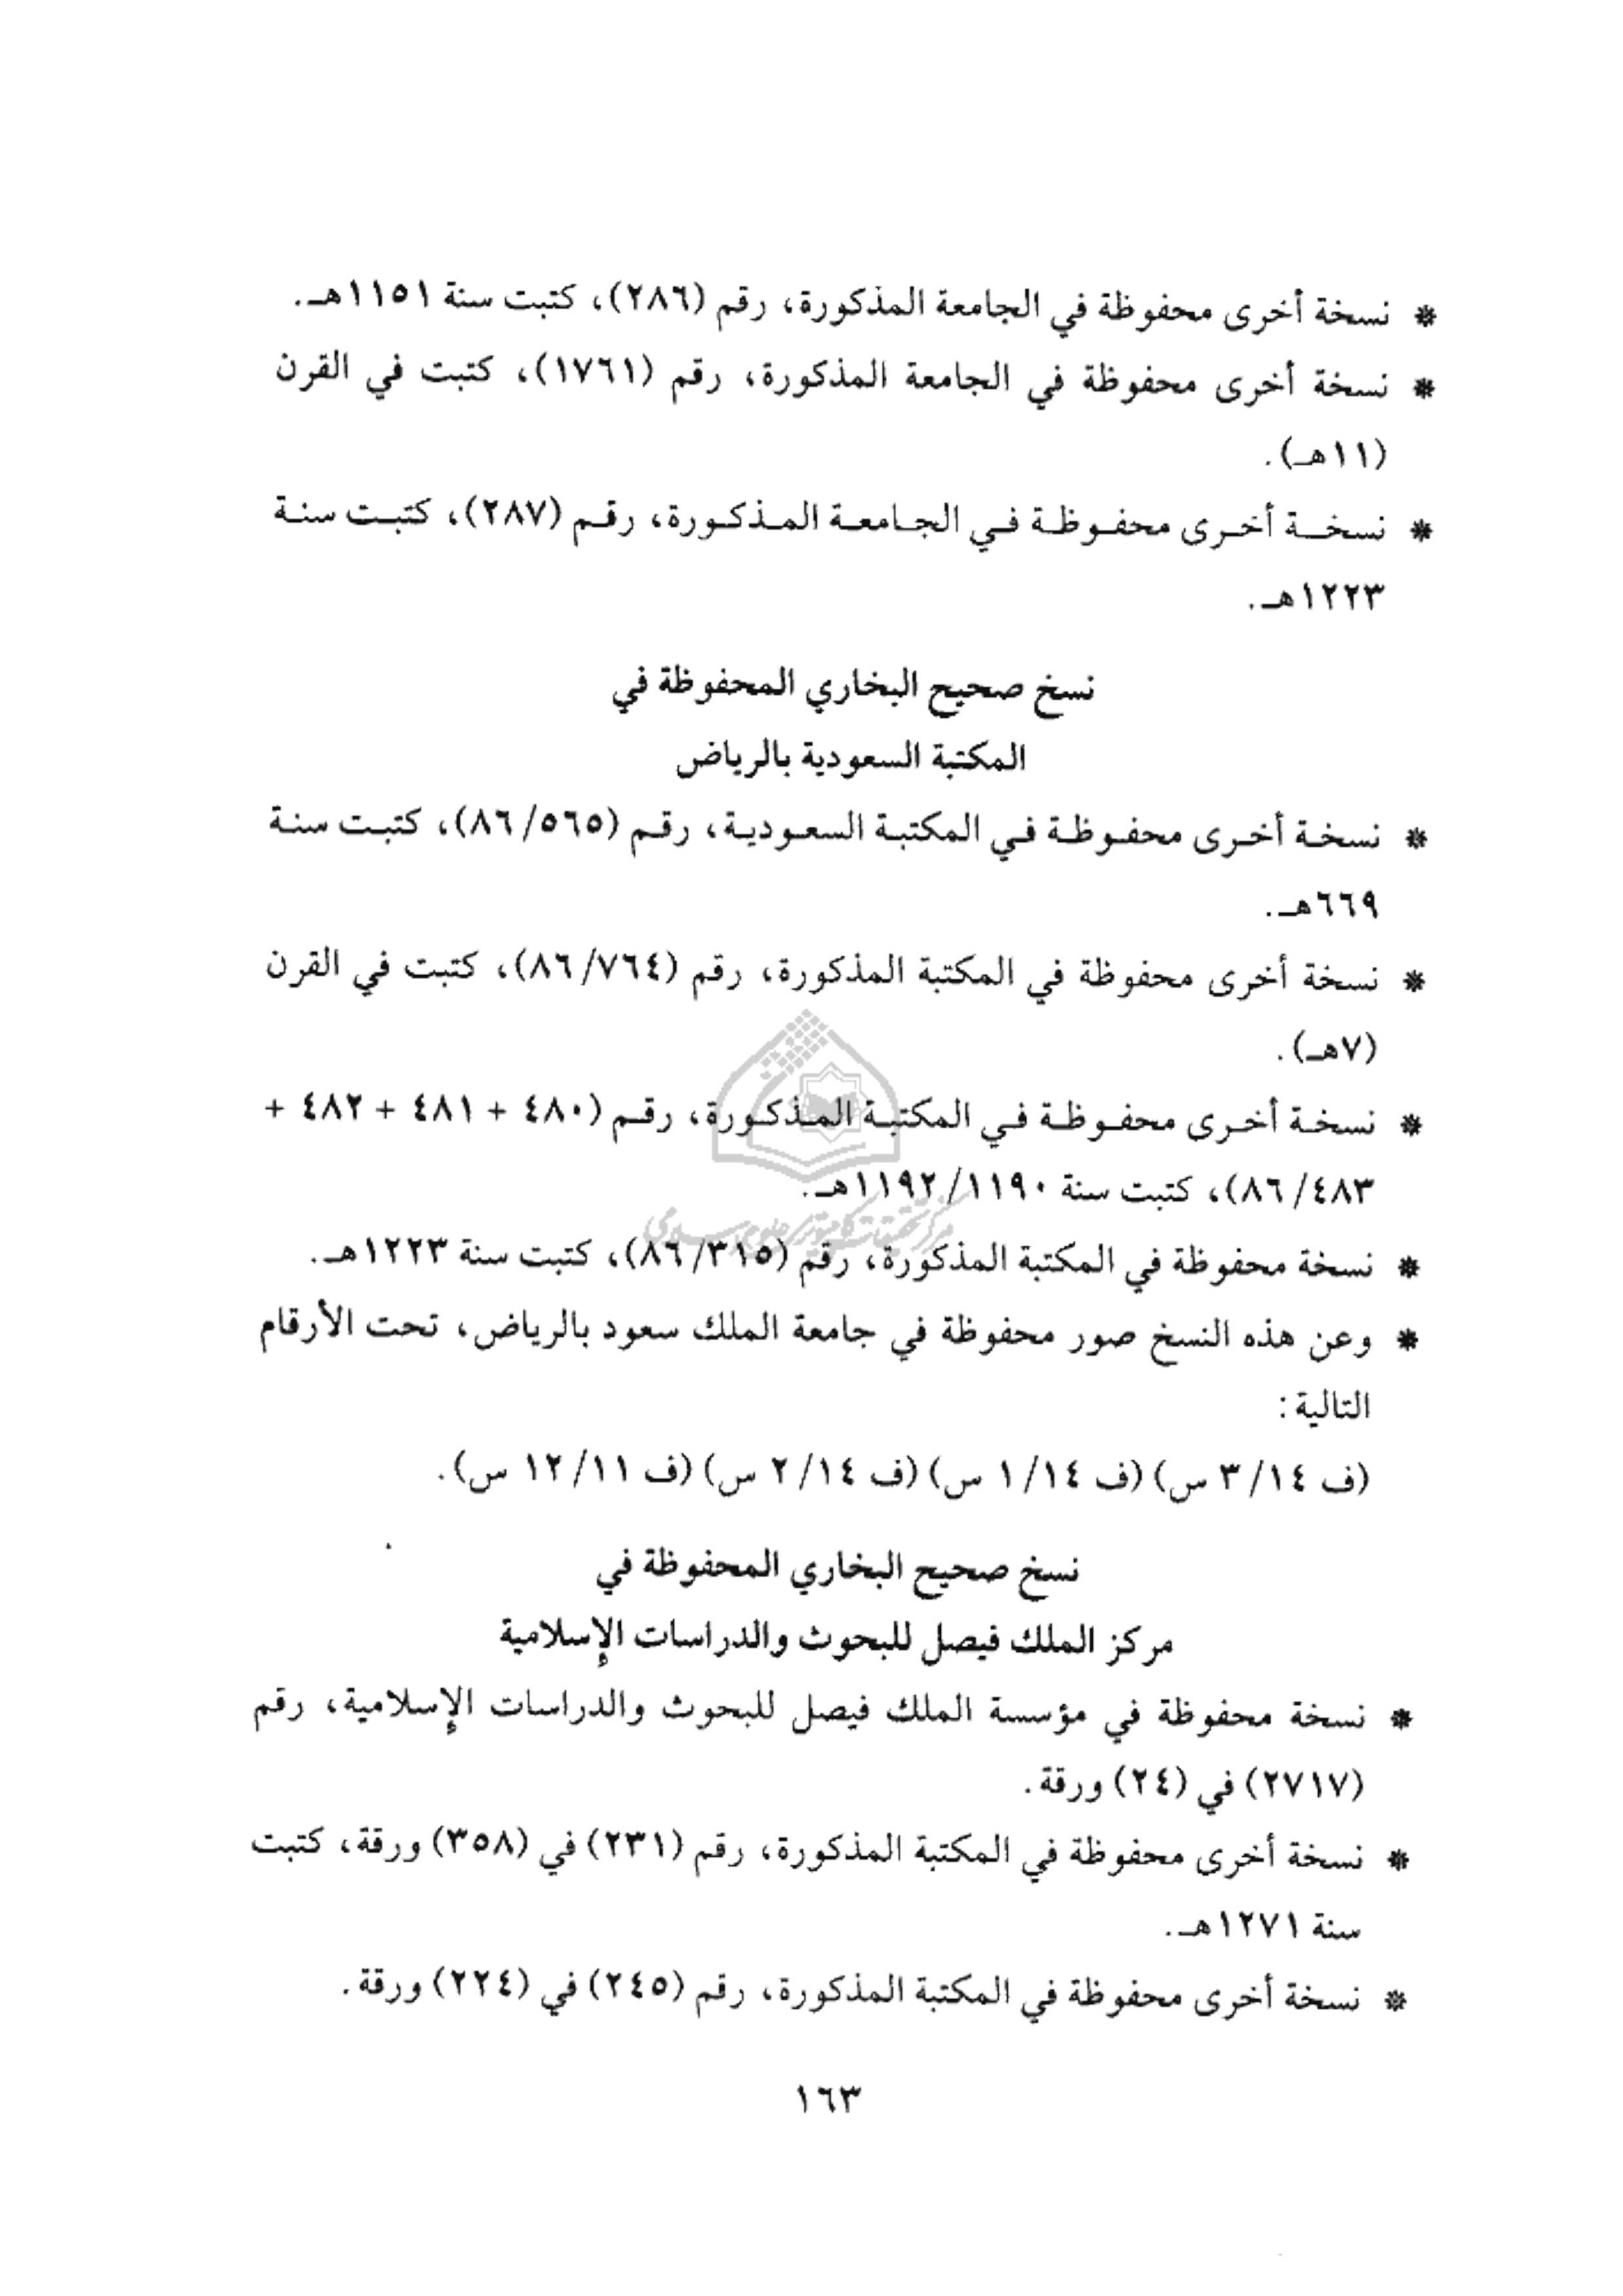 * نسخة أخرى محفوظة في الجامعة المذكورة، رقم (٢٨٦)، كتبت سنة ١١٥١هـ.
* نسخة أخرى محفوظة في الجامعة المذكورة، رقم (١٧٦١)، كتبت في القرن
(١١هـ).
* نسخة أخرى محفوظة في الجامعة المذكورة، رقم (٢٨٧)، كتبت سنة
١٢٢٣هـ.
نسخ صحيح البخاري المحفوظة في
المكتبة السعودية بالرياض
* نسخة أخرى محفوظة في المكتبة السعودية، رقم (٨٦/٥٦٥)، كتبت سنة
٦٦٩هـ.
* نسخة أخرى محفوظة في المكتبة المذكورة، رقم (٨٦/٧٦٤)، كتبت في القرن
(٧هـ).
* نسخة أخرى محفوظة في المكتبة المذكورة، رقم (٤٨٠ + ٤٨١ + ٤٨٢ +
٨٦/٤٨٣)، كتبت سنة ١١٩٢/١١٩٠هـ.
* نسخة محفوظة في المكتبة المذكورة، رقم (٨٦/٣١٥)، كتبت سنة ١٢٢٣هـ.
* وعن هذه النسخ صور محفوظة في جامعة الملك سعود بالرياض، تحت الأرقام
التالية:
(ف ٣/١٤ س) (ف ١/١٤ س) (ف ٢/١٤ س) (ف ١٢/١١ س).
نسخ صحيح البخاري المحفوظة في
مركز الملك فيصل للبحوث والدراسات الإسلامية
* نسخة محفوظة في مؤسسة الملك فيصل للبحوث والدراسات الإسلامية، رقم
(٢٧١٧) في (٢٤) ورقة.
* نسخة أخرى محفوظة في المكتبة المذكورة، رقم (٢٣١) في (٣٥٨) ورقة، كتبت
سنة ١٢٧١هـ.
* نسخة أخرى محفوظة في المكتبة المذكورة، رقم (٢٤٥) في (٢٢٤) ورقة.
١٦٣